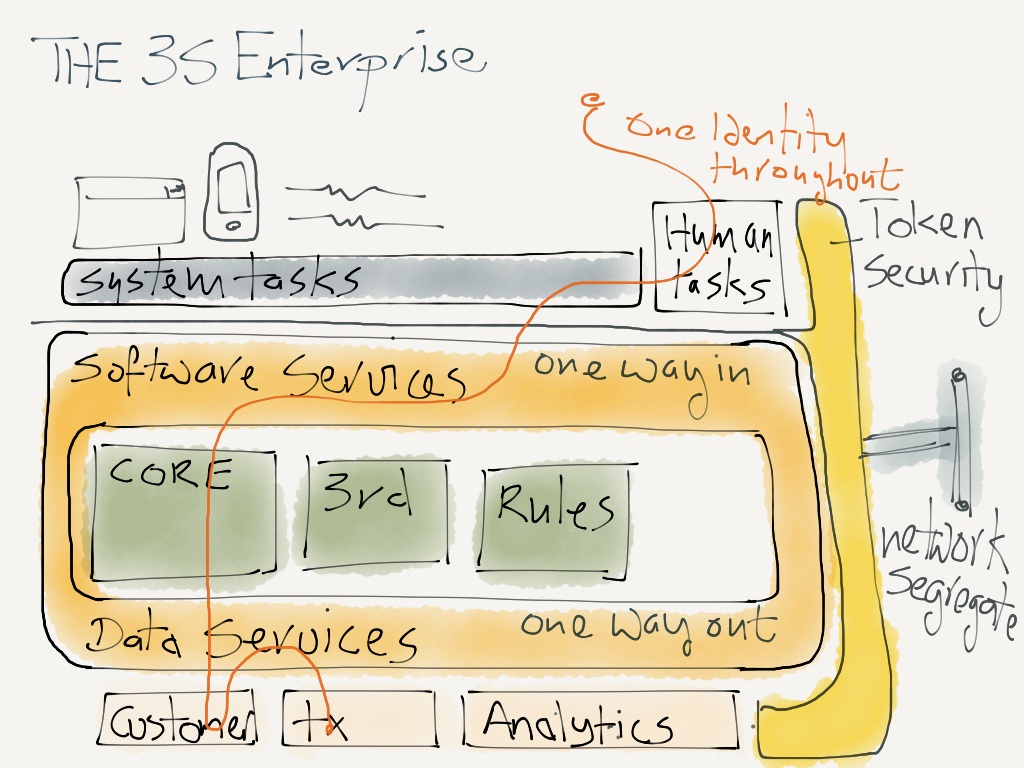 THE 3S Enterprise
one Identity
throughout
Human
tasks
Token
security
system tasks
Software Services
one way in
CORE
3rd
Rules
network
segregate
Data Services
one way out
Customer
tx
Analytics